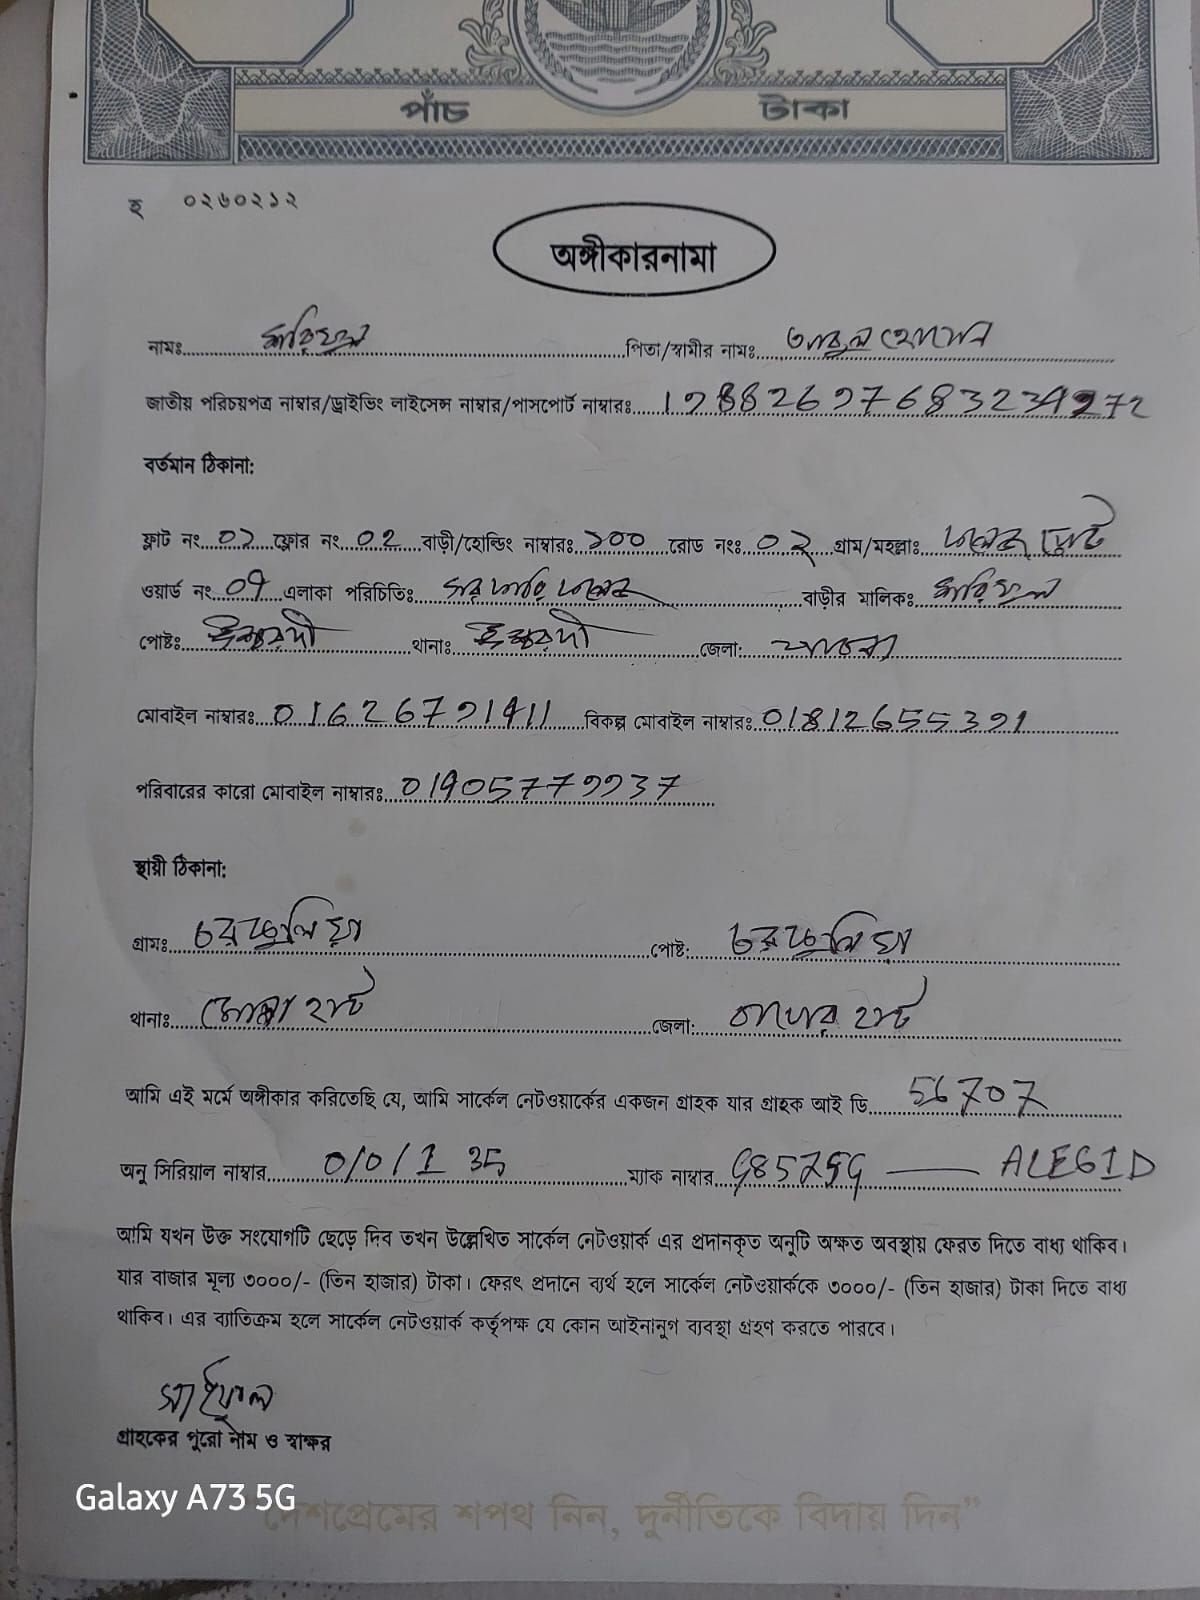 পাঁচ টাকা
হ ০২৬০২১২
অঙ্গীকারনামা
নামঃ পিতা/স্বামীর নামঃ আবুল হোসেন
জাতীয় পরিচয়পত্র নাম্বার/ড্রাইভিং লাইসেন্স নাম্বার/পাসপোর্ট নাম্বারঃ
বর্তমান ঠিকানা:
ফ্লাট নং ফ্লোর নং 02 বাড়ী/হোল্ডিং নাম্বারঃ ১০০ রোড নংঃ ০২ গ্রাম/মহল্লাঃ
ওয়ার্ড নং 09 এলাকা পরিচিতিঃ বাড়ীর মালিকঃ
পোষ্টঃ ঈশ্বরদী থানাঃ ঈশ্বরদী জেলা: পাবনা
মোবাইল নাম্বারঃ বিকল্প মোবাইল নাম্বারঃ 01812655391
পরিবারের কারো মোবাইল নাম্বারঃ
স্থায়ী ঠিকানা:
গ্রামঃ পোষ্ট:
থানাঃ মোল্লা হাট জেলা: বাগের হাট
আমি এই মর্মে অঙ্গীকার করিতেছি যে, আমি সার্কেল নেটওয়ার্কের একজন গ্রাহক যার গ্রাহক আই ডি 56707
অনু সিরিয়াল নাম্বার ম্যাক নাম্বার
আমি যখন উক্ত সংযোগটি ছেড়ে দিব তখন উল্লেখিত সার্কেল নেটওয়ার্ক এর প্রদানকৃত অনুটি অক্ষত অবস্থায় ফেরত দিতে বাধ্য থাকিব।
যার বাজার মূল্য ৩০০০/- (তিন হাজার) টাকা। ফেরৎ প্রদানে ব্যর্থ হলে সার্কেল নেটওয়ার্ককে ৩০০০/- (তিন হাজার) টাকা দিতে বাধ্য
থাকিব। এর ব্যাতিক্রম হলে সার্কেল নেটওয়ার্ক কর্তৃপক্ষ যে কোন আইনানুগ ব্যবস্থা গ্রহণ করতে পারবে।
গ্রাহকের পুরো নাম ও স্বাক্ষর
Galaxy A73 5G
দেশপ্রেমের শপথ নিন, দুর্নীতিকে বিদায় দিন"